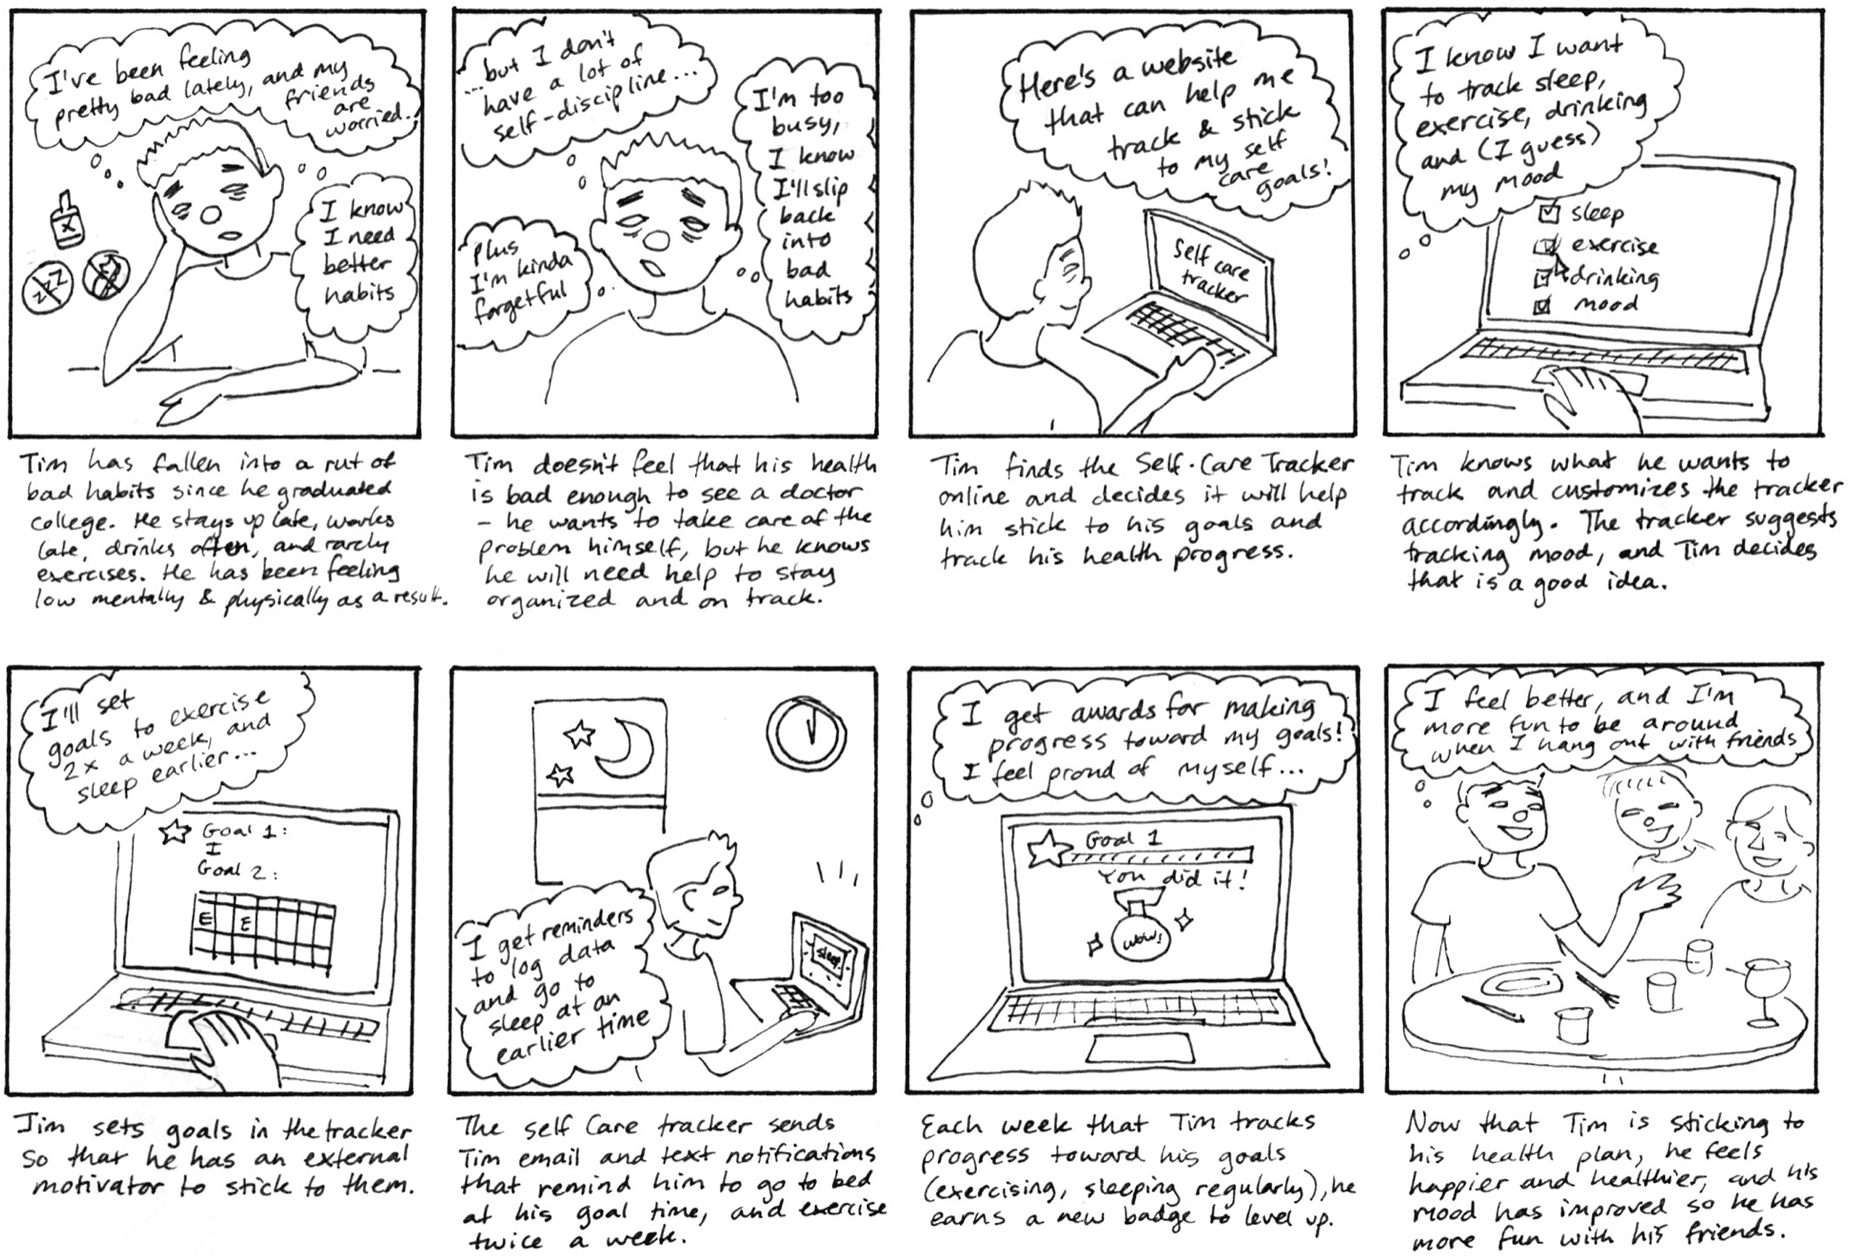 I've been feeling
pretty bad lately, and my
friends
are
worried.
I know
I need
better
habits
X
zzz
Tim has fallen into a rut of
bad habits since he graduated
college. He stays up late, works
late, drinks often, and rarely
exercises. He has been feeling
low mentally & physically as a result.
...but I don't
have a lot of
self-discipline...
I'm too
busy,
I know
I'll slip
back
into
bad
habits
plus
I'm kinda
forgetful
Tim doesn't feel that his health
is bad enough to see a doctor
- he wants to take care of the
problem himself, but he knows
he will need help to stay
organized and on track.
Here's a website
that can help me
track & stick
to my self
care
goals!
Self care
tracker
Tim finds the Self-Care Tracker
online and decides it will help
him stick to his goals and
track his health progress.
I know I want
to track sleep,
exercise, drinking
and (I guess)
my mood
sleep
exercise
drinking
mood
Tim knows what he wants to
track and customizes the tracker
accordingly. The tracker suggests
tracking mood, and Tim decides
that is a good idea.
I'll set
goals to exercise
2x a week, and
sleep earlier...
Goal 1:
I
Goal 2:
E
E
Tim sets goals in the tracker
so that he has an external
motivator to stick to them.
I get reminders
to log data
and go to
sleep at an
earlier time
sleep!
The self Care tracker sends
Tim email and text notifications
that remind him to go to bed
at his goal time, and exercise
twice a week.
I get awards for making
progress toward my goals!
I feel proud of myself...
Goal 1
You did it!
wow!
Each week that Tim tracks
progress toward his goals
(exercising, sleeping regularly), he
earns a new badge to level up.
I feel better, and I'm
more fun to be around
when I hang out with friends
Now that Tim is sticking to
his health plan, he feels
happier and healthier, and his
mood has improved so he has
more fun with his friends.